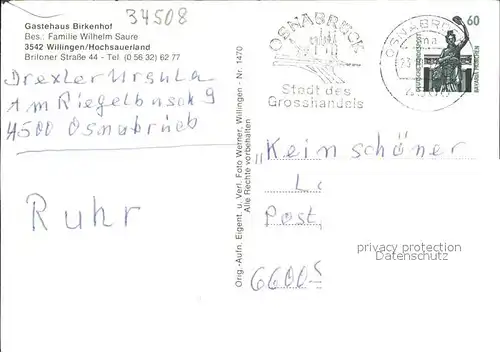 34508
Gästehaus Birkenhof
Bes.: Familie Wilhelm Saure
3542 Willingen/Hochsauerland
Briloner Straße 44 - Tel. (0 56 32) 62 77
Drexler Ursula
Am Riegelbusch 9
4500 Osnabrück
Ruhr
Orig.-Aufn. Eigent. u. Verl. Foto Werner, Willingen - Nr. 1470
Alle Rechte vorbehalten
OSNABRÜCK
Stadt des
Grosshandels
OSNABRÜCK
60
DEUTSCHE BUNDESPOST
BAVARIA MÜNCHEN
"Kein schöner
Post,
6600 S
privacy protection
Datenschutz